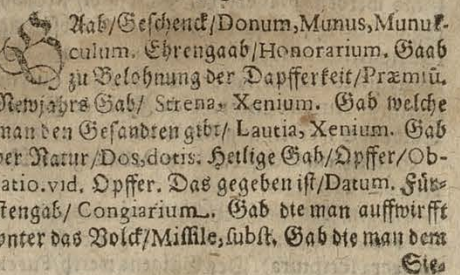 Gaab/Geschenck/Donum, Munus, Munus-
culum. Ehrengaab/Honorarium. Gaab
zu Belohnung der Dapfferkeit/Præmiū.
Newjahrs Gab/ Strena, Xenium. Gab welche
man den Gesandten gibt/ Lautia, Xenium. Gab
der Natur/Dos, dotis. Heilige Gab/Opffer/Ob-
latio. vid. Opffer. Das gegeben ist/Datum. Für-
stengab/ Congiarium. Gab die man auffwirfft
vnter das Volck/Missile, subst. Gab die man dem
Sie-